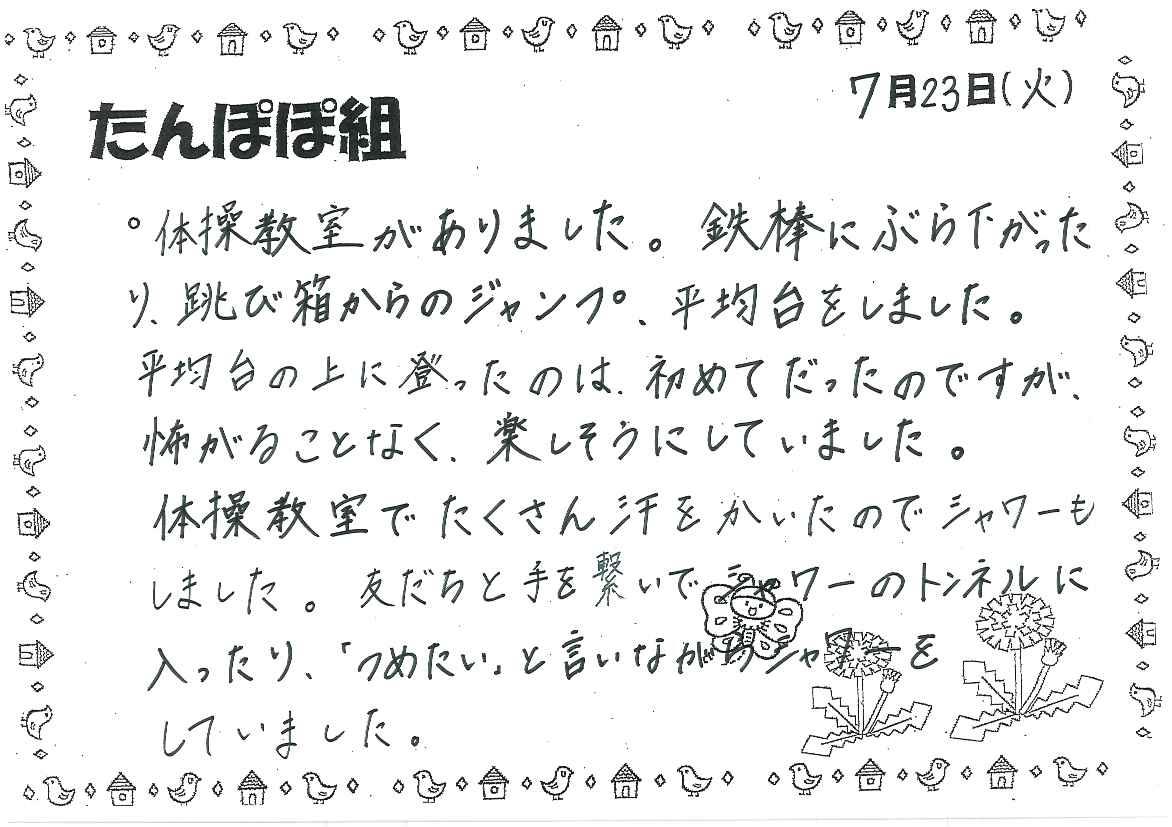 7月23日(火)
たんぽぽ組
。体操教室がありました。鉄棒にぶら下がった
り、跳び箱からのジャンプ、平均台をしました。
平均台の上に登ったのは、初めてだったのですが、
怖がることなく、楽しそうにしていました。
体操教室でたくさん汗をかいたのでシャワーも
しました。友だちと手を繋いでシャワーのトンネルに
入ったり、「つめたい」と言いながらシャワーを
していました。